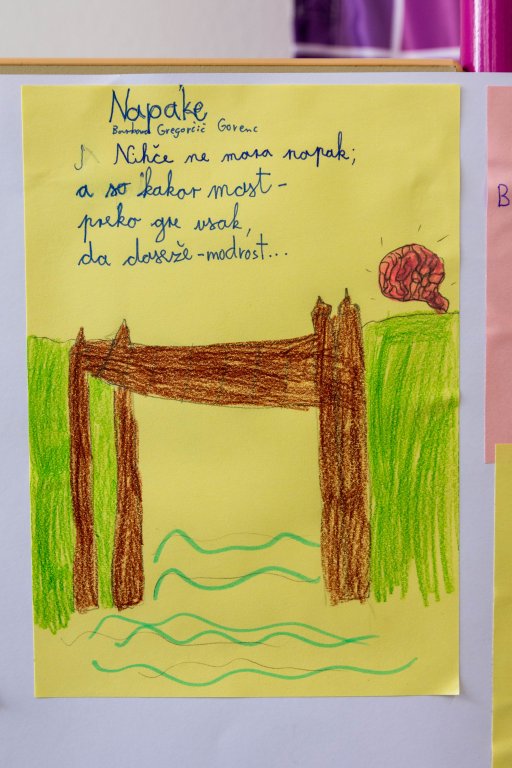 Napake
Barbara Gregorčič Gorenc
Nihče ne mara napak;
a so kakor most -
preko gre vsak,
da doseže - modrost...
B